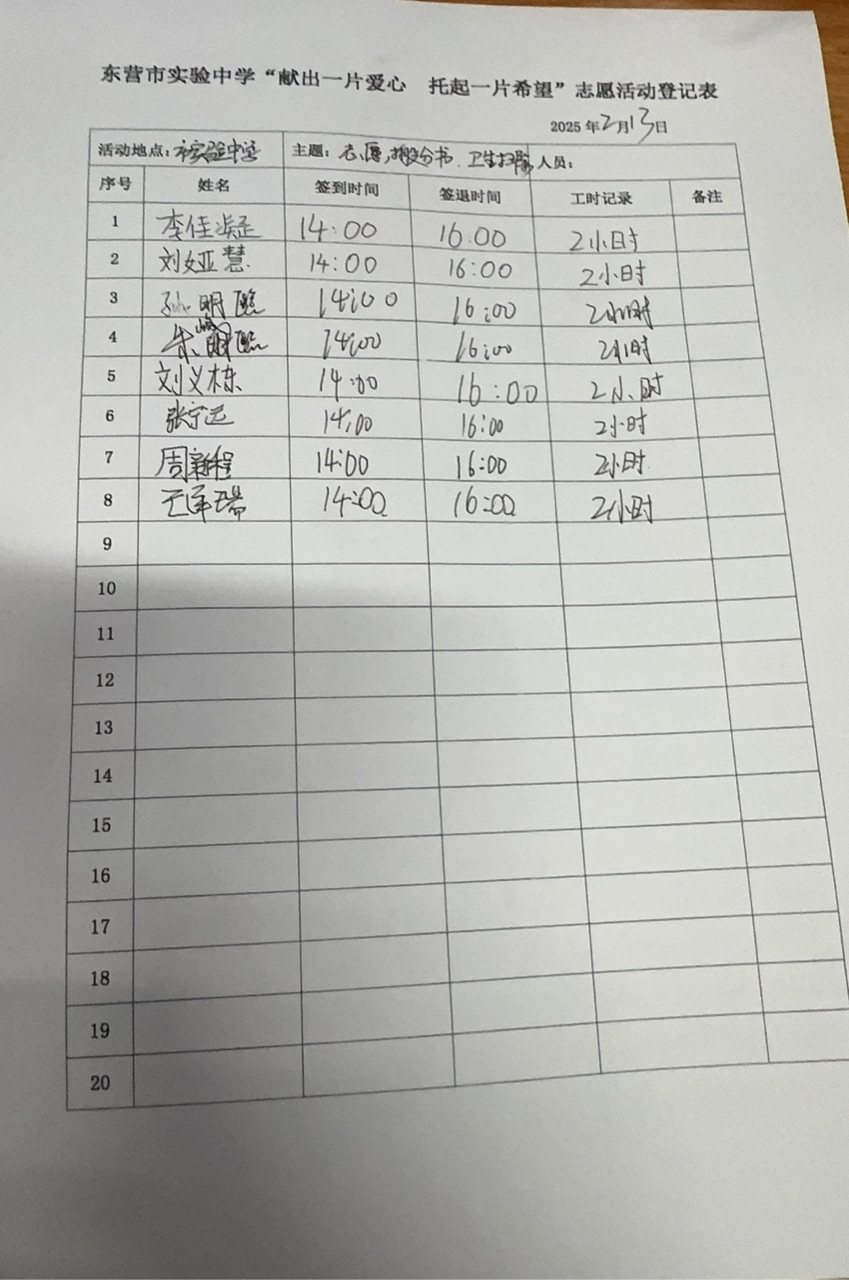 东营市实验中学“献出一片爱心 托起一片希望”志愿活动登记表
2025年2月13日
活动地点:市实验中学 主题:志愿,搬分书、卫生扫除 人员:
序号 姓名 签到时间 签退时间 工时记录 备注
1 李佳凝 14:00 16:00 2小时
2 刘娅慧 14:00 16:00 2小时
3 孙明 14:00 16:00 2小时
4 朱 14:00 16:00 2小时
5 刘义栋 14:00 16:00 2小时
6 张宁远 14:00 16:00 2小时
7 周新程 14:00 16:00 2小时
8 王泽瑞 14:00 16:00 2小时
9
10
11
12
13
14
15
16
17
18
19
20